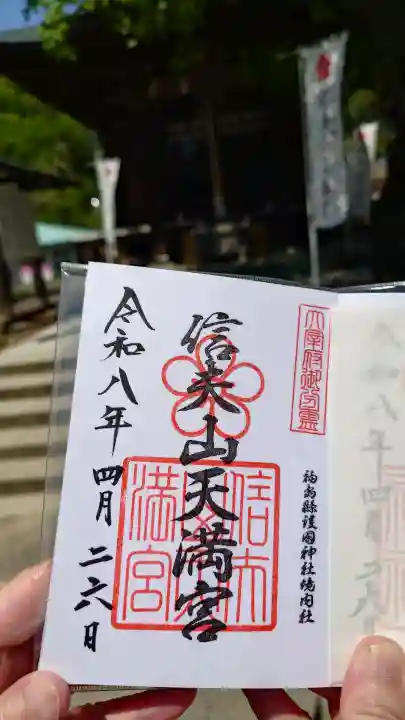 太宰府御分霊
福島縣護國神社境内社
信夫山天満宮
信夫
満宮
令和八年四月二六日